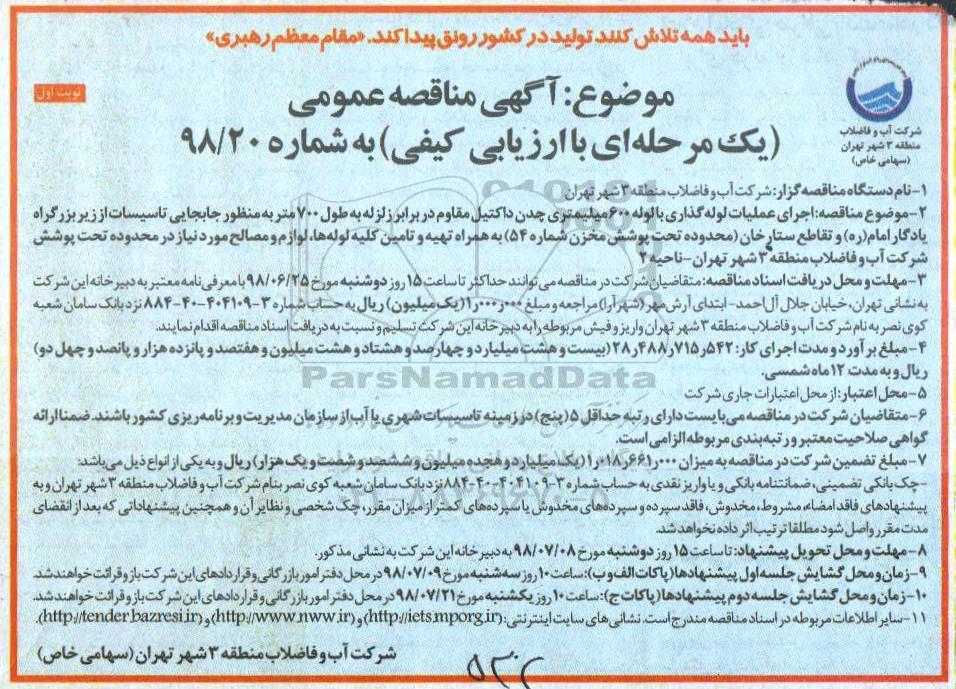 باید همه تلاش کنند تولید در کشور رونق پیدا کند. «مقام معظم رهبری»
نوبت اول
شرکت آب و فاضلاب
منطقه ۳ شهر تهران
(سهامی خاص)
موضوع: آگهی مناقصه عمومی
(یک مرحله‌ای با ارزیابی کیفی) به شماره ۹۸/۲۰
۱-نام دستگاه مناقصه‌گزار: شرکت آب و فاضلاب منطقه ۳ شهر تهران
۲-موضوع مناقصه: اجرای عملیات لوله‌گذاری با لوله ۶۰۰ میلیمتری چدن داکتیل مقاوم در برابر زلزله به طول ۷۰۰ متر به منظور جابجایی تاسیسات از زیر بزرگراه
یادگار امام(ره) و تقاطع ستارخان (محدوده تحت پوشش مخزن شماره ۵۴) به همراه تهیه و تامین کلیه لوله‌ها، لوازم و مصالح مورد نیاز در محدوده تحت پوشش
شرکت آب و فاضلاب منطقه ۳ شهر تهران-ناحیه ۲
۳-مهلت و محل دریافت اسناد مناقصه: متقاضیان شرکت در مناقصه می‌توانند حداکثر تا ساعت ۱۵ روز دوشنبه مورخ ۹۸/۰۶/۲۵ با معرفی نامه معتبر به دبیرخانه این شرکت
به نشانی تهران، خیابان جلال آل احمد- ابتدای آرش مهر (شهرآرا) مراجعه و مبلغ ۱٫۰۰۰٫۰۰۰ (یک میلیون) ریال به حساب شماره ۳-۴۰۴۱۰۹-۴۰-۸۸۴ نزد بانک سامان شعبه
کوی نصر به نام شرکت آب و فاضلاب منطقه ۳ شهر تهران واریز و فیش مربوطه را به دبیرخانه این شرکت تسلیم و نسبت به دریافت اسناد مناقصه اقدام نمایند.
۴-مبلغ برآورد و مدت اجرای کار: ۲۸٫۴۸۸٫۷۱۵٫۵۴۲ (بیست و هشت میلیارد و چهارصد و هشتاد و هشت میلیون و هفتصد و پانزده هزار و پانصد و چهل دو)
ریال و به مدت ۱۲ ماه شمسی.
ParsNamadData
۵-محل اعتبار: از محل اعتبارات جاری شرکت
۶-متقاضیان شرکت در مناقصه می‌بایست دارای رتبه حداقل ۵ (پنج) در زمینه تاسیسات شهری یا آب از سازمان مدیریت و برنامه‌ریزی کشور باشند. ضمنا ارائه
گواهی صلاحیت معتبر و رتبه‌بندی مربوطه الزامی است.
۷-مبلغ تضمین شرکت در مناقصه به میزان ۱٫۰۱۸٫۶۶۱٫۰۰۰ (یک میلیارد و هجده میلیون و ششصد و شصت و یک هزار) ریال و به یکی از انواع ذیل می‌باشد:
-چک بانکی تضمینی، ضمانتنامه بانکی و یا واریز نقدی به حساب شماره ۳-۴۰۴۱۰۹-۴۰-۸۸۴ نزد بانک سامان شعبه کوی نصر بنام شرکت آب و فاضلاب منطقه ۳ شهر تهران و به
پیشنهادهای فاقد امضاء، مشروط، مخدوش، فاقد سپرده و سپرده‌های مخدوش یا سپرده‌های کمتر از میزان مقرر، چک شخصی و نظایر آن و همچنین پیشنهاداتی که بعد از انقضای
مدت مقرر واصل شود مطلقا ترتیب اثر داده نخواهد شد.
۸-مهلت و محل تحویل پیشنهاد: تا ساعت ۱۵ روز دوشنبه مورخ ۹۸/۰۷/۰۸ به دبیرخانه این شرکت به نشانی مذکور.
۹-زمان و محل گشایش جلسه اول پیشنهادها (پاکات الف و ب): ساعت ۱۰ روز سه‌شنبه مورخ ۹۸/۰۷/۰۹ در محل دفتر امور بازرگانی و قراردادهای این شرکت باز و قرائت خواهند شد.
۱۰-زمان و محل گشایش جلسه دوم پیشنهادها (پاکات ج): ساعت ۱۰ روز یکشنبه مورخ ۹۸/۰۷/۲۱ در محل دفتر امور بازرگانی و قراردادهای این شرکت باز و قرائت خواهند شد.
۱۱-سایر اطلاعات مربوطه در اسناد مناقصه مندرج است. نشانی‌های سایت اینترنتی: (http://iets.mporg.ir) و (http://www.nww.ir) و (http://tender.bazresi.ir).
شرکت آب و فاضلاب منطقه ۳ شهر تهران (سهامی خاص)